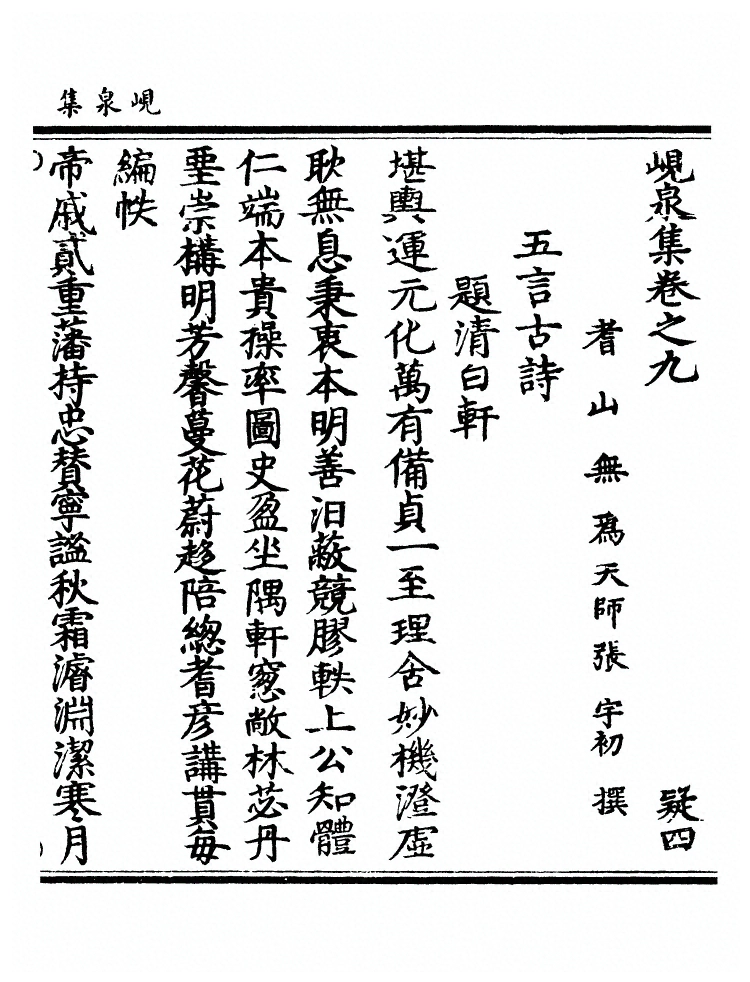 峴泉集
峴泉集卷之九 疑四
耆山無爲天師張宇初撰
五言古詩
題清白軒
堪輿運元化萬有備貞一至理含妙機澄虛
耿無息秉衷本明善汨蔽競膠軼上公知體
仁端本貴操率圖史盈坐隅軒窓敞林苾丹
堊崇構明芳馨蔓花蔚趍陪總耆彦講貫每
編帙
帝戚貳重藩持忠賛寧謐秋霜濬淵潔寒月